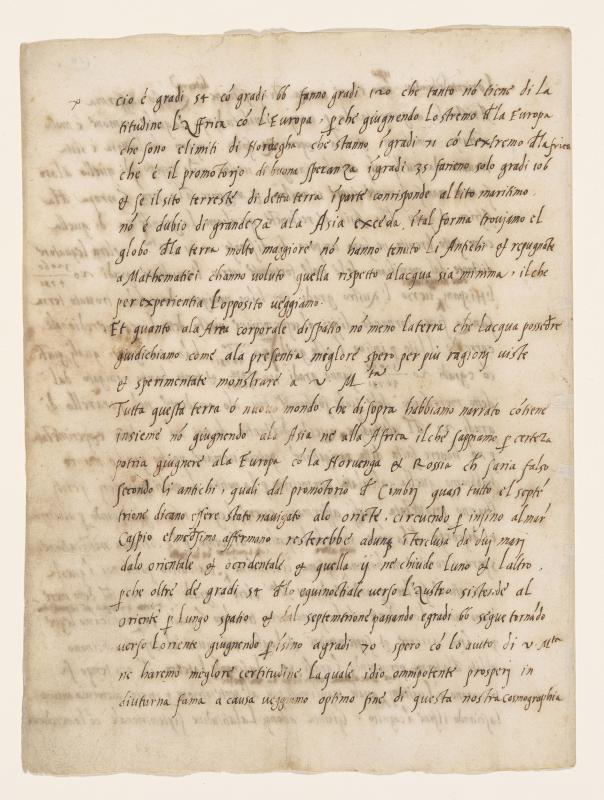 cio é gradi 54 có gradi 66 fanno gradi 120 che tanto nó tiene di la
titudine l'Affrica có l'Europa, p che giugnendo lo stremo d'la Europa
che sono e limiti di Norvegha che stanno í gradi 71 có l'extremo d'la Africa
che é il promotorjo di buona speranza í gradi 35 farieno solo gradi 106
& se il sito terreste di detta terra í parte corrisponde al lito maritimo
nó é dubio di grandeza ala Asia exceda. í tal forma trovjamo el
globo d'la terra molto maggiore nó hanno tenuto Li Antichi & repugnāte
a Mathematici channo voluto quella rispetto alacqua sia minima, il che
per experientia l'opposito veggiamo.
Et quanto ala Area corporale di spatio nó meno la terra che lacqua possed're
guidichiamo come ala presentia meglore spero per piu ragionj viste
& sperimentate monstrare a v Mta
Tutta questa terra o nuovo mondo che di sopra habbiamo narrato cótiene
insieme nó giugnendo ala Asia ne alla Africa il che sappiamo p certeza
potria giugnere ala Europa có la Norvenga & Rossia ch' saria falso
secondo li antichi, quali dal promotorio d' Cimbrj quasi tutto el septé
trione dicano essere stato navigato alo oriéte, circuendo p insino al mar
Caspio el med'simo affermono resterebbe adunq íterclusa da duj marj
dalo orientale & occidentale & quella ij ne chiude l'uno & l'altro.
p che oltre de gradi 54 d'lo equinoctiale verso l'Austro si stende al
oriente p lungo spatio & dal septemtrione passando e gradi 66 segue tornádo
verso l'oriente giugnendo p ísino a gradi 70 spero có lo aiuto di v. Mta
ne haremo meglore certitudine la quale idio omnipotente prosperj in
diuturna fama a causa veggiamo optimo fine di questa nostra cosmographia